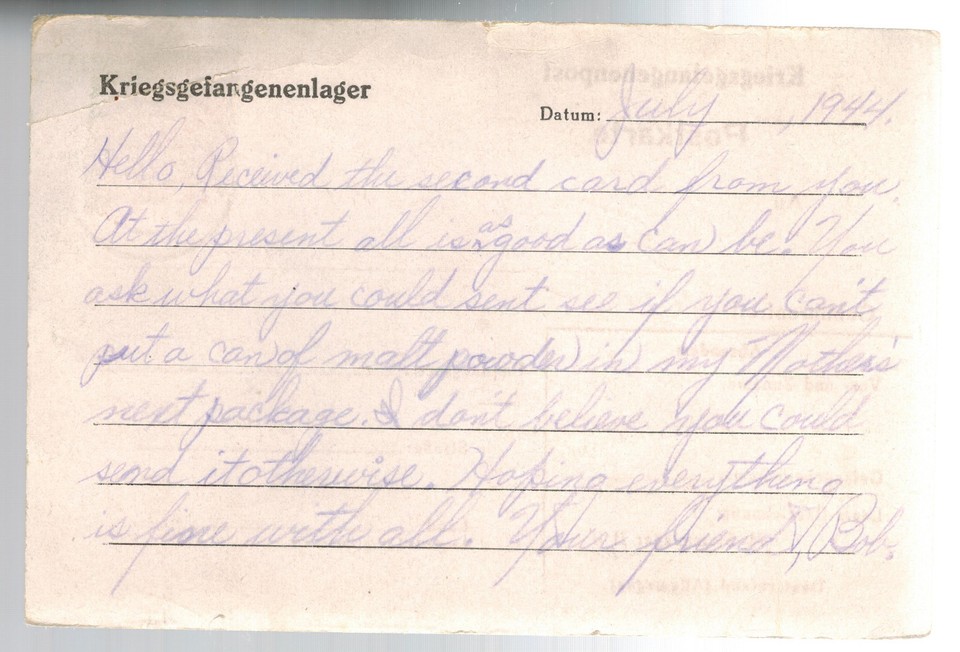 Kriegsgefangenenlager
Datum: July , 1944.
Hello, Received the second card from you.
At the present all is as good as can be. You
ask what you could sent see if you can't
put a can of malt powder in my Mother's
next package. I don't believe you could
send it otherwise. Hoping everything
is fine with all. Your friend, Bob.